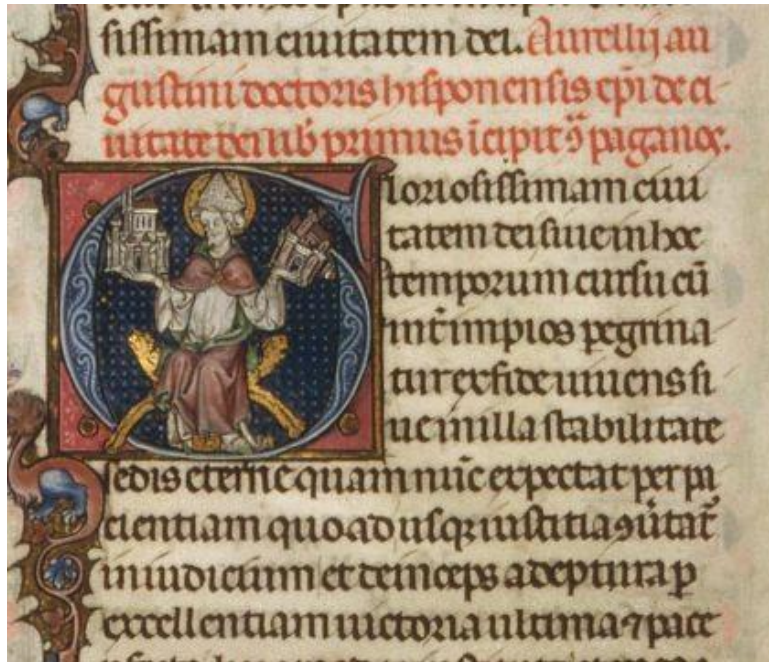 sissimam ciuitatem dei. Aurelij au
gustini doctoris hisponensis epi de ci
uitate dei lib primus icipit ꝯ paganos.
Gloriosissimam ciui
tatem dei siue in hoc
temporum cursu cū
int̄ impios pegrina
tur ex fide uiuens si
ue in illa stabilitate
sedis eterne quam nūc expectat per pa
cientiam quoadusqꝫ iusticia ꝯuertat̄
in iudicium et deinceps adeptura ꝑ
excellentiam uictoria ultima ⁊ pace